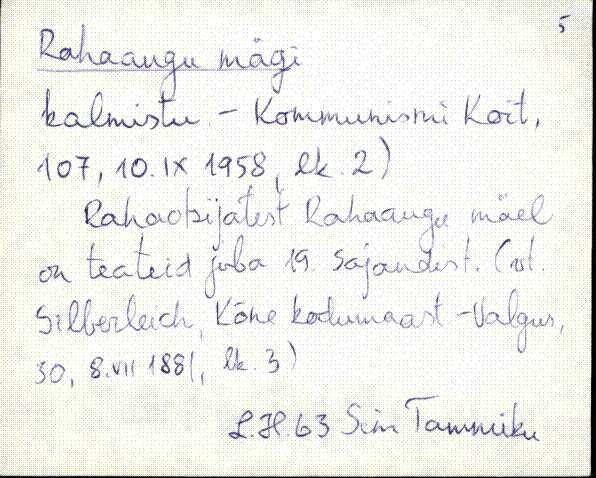 5
Rahaaugu mägi
kalmistu. - Kommunismi Koit,
107, 10.IX 1958, lk. 2)
Rahaotsijatest Rahaaugu mäel
on teateid juba 19. sajandist. (vt.
Silberleich, Kõne kodumaast - Valgus,
30, 8.VII 1881, lk. 3)
L.H. 63 Siim Tammiku